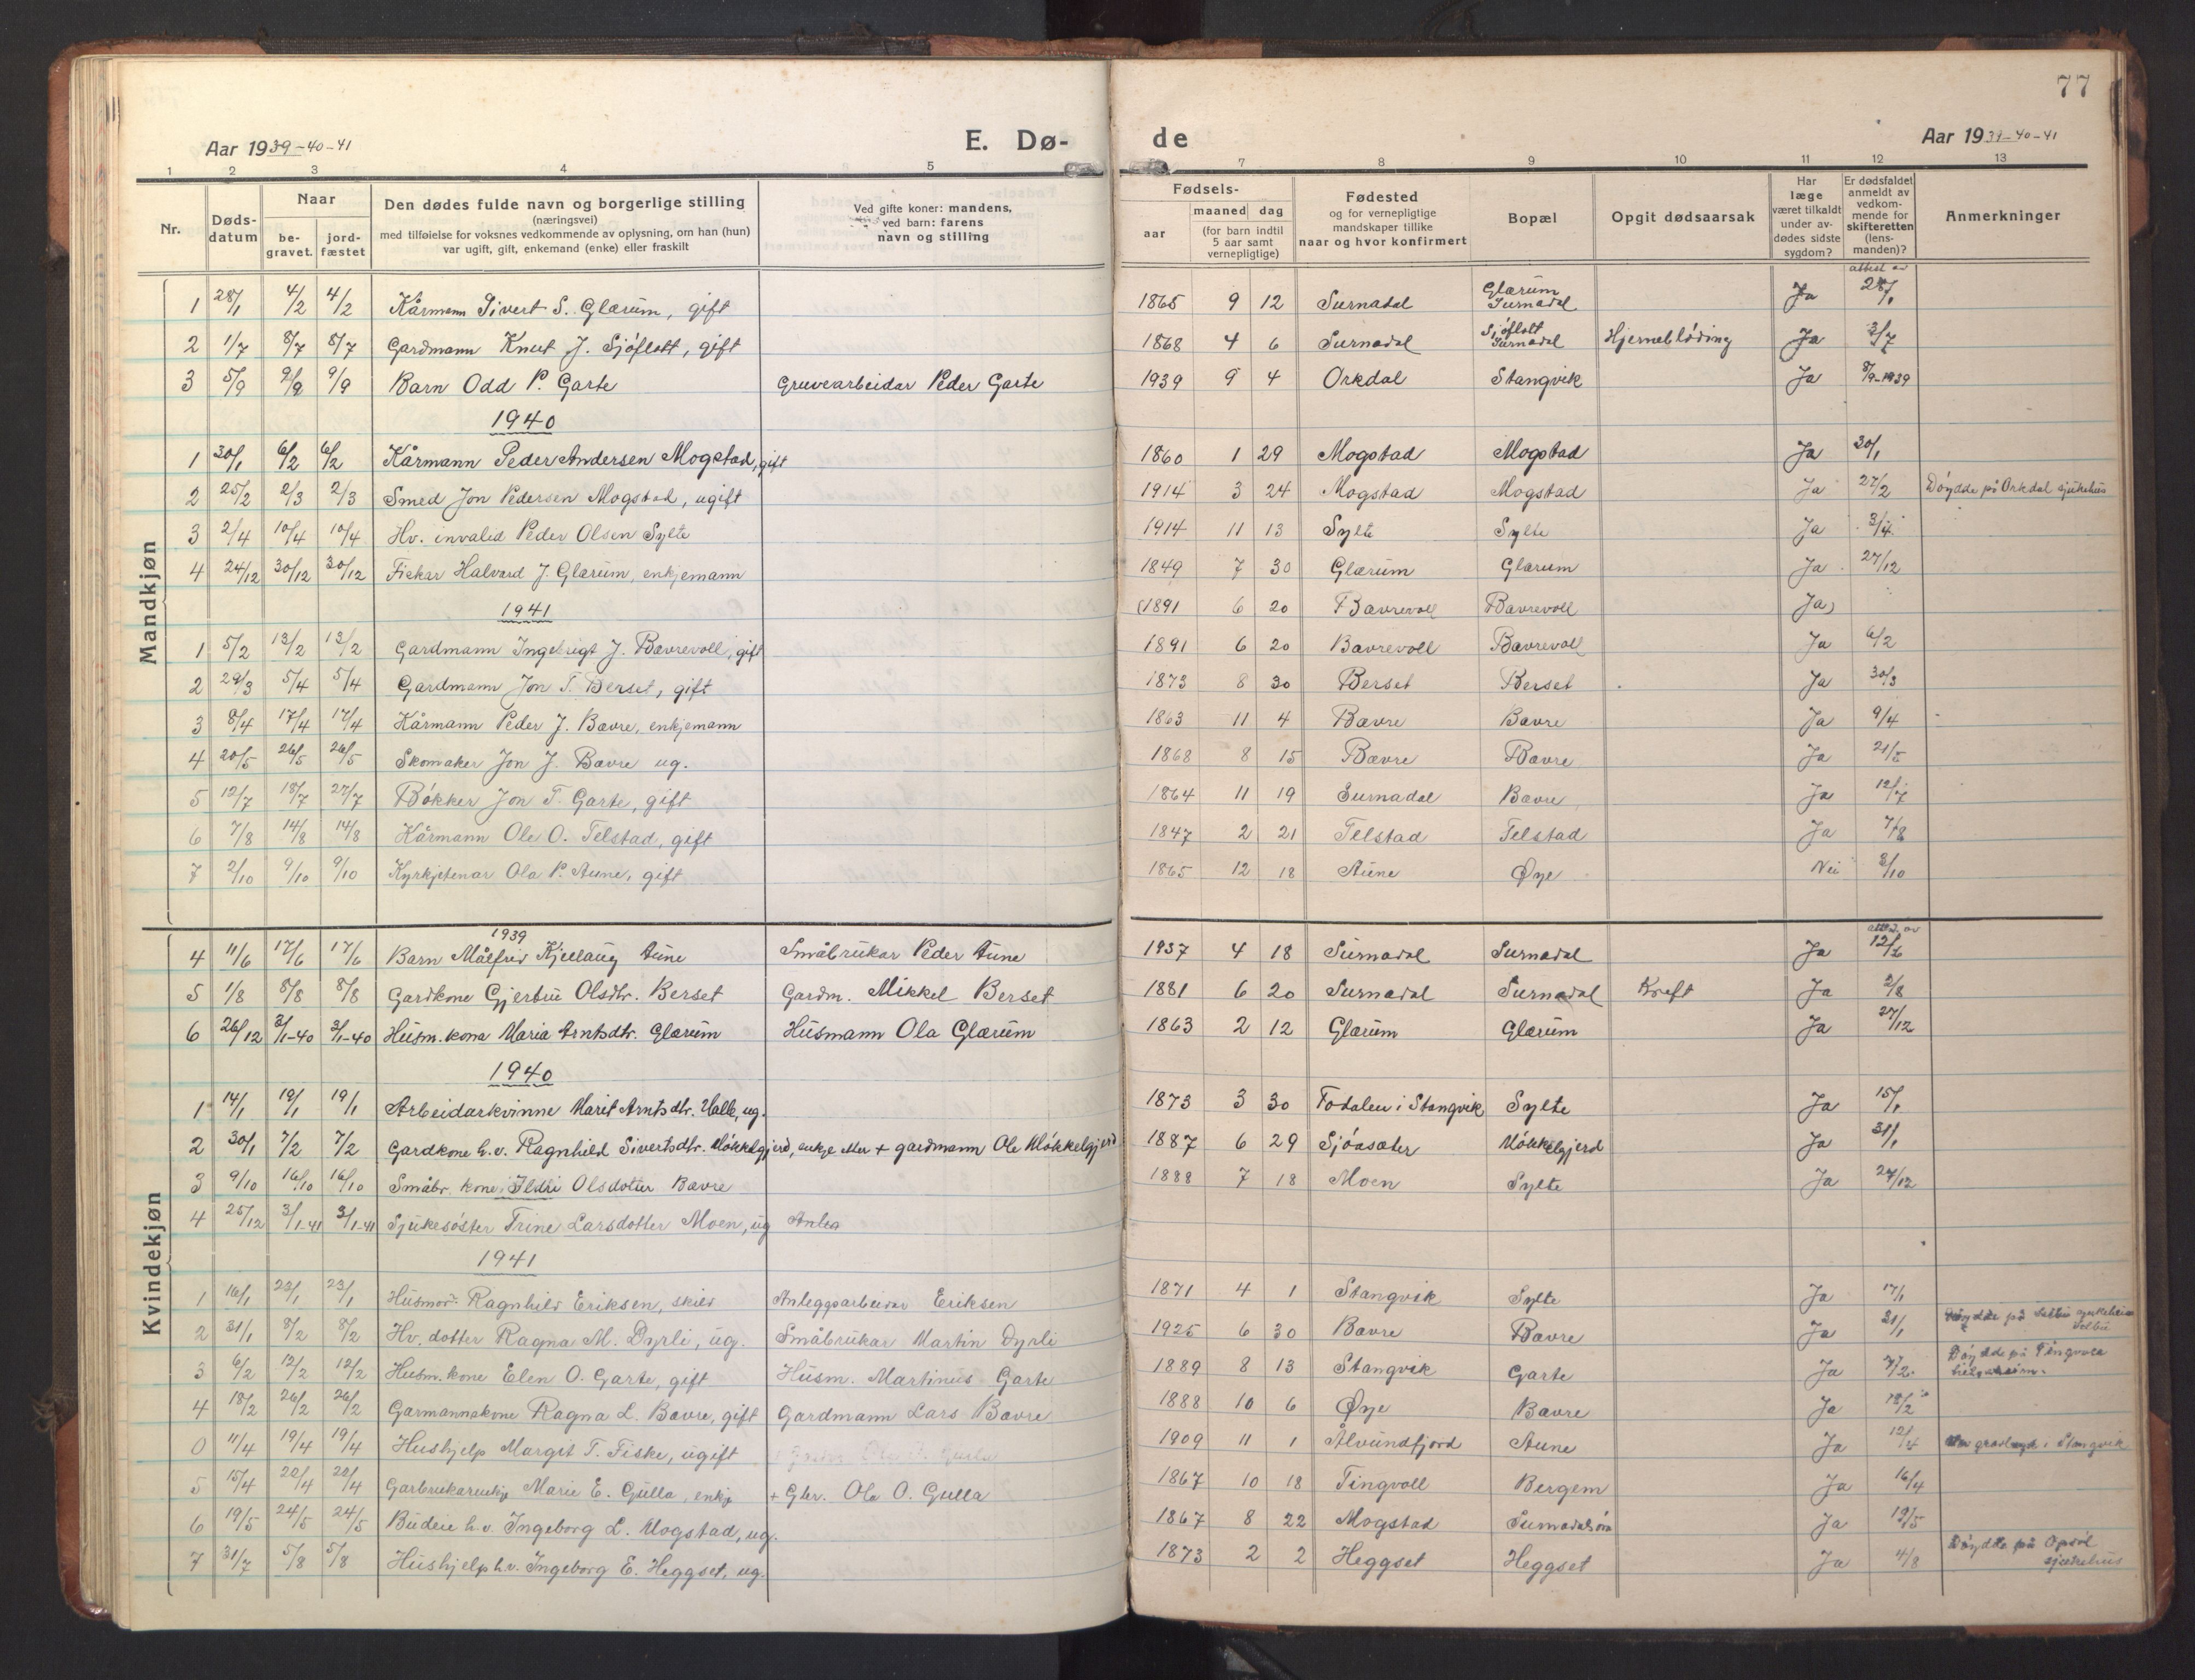 77
Aar 1939-40-41 E. Dø- de Aar 1939-40-41
1 2 3 4 5 7 8 9 10 11 12 13
Nr. Døds-datum Naar be-gravet. jord-fæstet Den dødes fulde navn og borgerlige stilling (næringsvei) med tilføielse for voksnes vedkommende av oplysning, om han (hun) var ugift, gift, enkemand (enke) eller fraskilt Ved gifte koner: mandens, ved barn: farens navn og stilling Fødsels- aar maaned dag (for barn indtil 5 aar samt vernepligtige) Fødested og for vernepligtige mandskaper tillike naar og hvor konfirmert Bopæl Opgit dødsaarsak Har læge været tilkaldt under av-dødes sidste sygdom? Er dødsfaldet anmeldt av vedkom-mende for skifteretten (lens-manden)? Anmerkninger
Mandkjøn
1 28/1 4/2 4/2 Kårmann Sivert S. Glærum, gift 1865 9 12 Surnadal Glærum Surnadal Ja attest av 28/1
2 1/7 8/7 8/7 Gardmann Knut J. Sjøflott, gift 1868 4 6 Surnadal Sjøflott Surnadal Hjernebløding Ja 3/7
3 5/9 9/9 9/9 Barn Odd P. Garte Gruvearbeidar Peder Garte 1939 9 4 Orkdal Stangvik Ja 8/9-1939
1940
1 30/1 6/2 6/2 Kårmann Peder Andersen Mogstad, gift 1860 1 29 Mogstad Mogstad Ja 30/1
2 25/2 2/3 2/3 Smed Jon Pedersen Mogstad, ugift 1914 3 24 Mogstad Mogstad Ja 27/2 Døydde på Orkdal sjukehus
3 2/4 10/4 10/4 Hv. invalid Peder Olsen Sylte 1914 11 13 Sylte Sylte Ja 3/4
4 24/12 30/12 30/12 Fiskar Halvard J. Glærum, enkjemann 1849 7 30 Glærum Glærum Ja 27/12
1941 (1891 6 20 Bævrevoll Bævrevoll Ja)
1 5/2 13/2 13/2 Gardmann Ingebrigt J. Bævrevoll, gift 1891 6 20 Bævrevoll Bævrevoll Ja 6/2
2 29/3 5/4 5/4 Gardmann Jon T. Berset, gift 1873 8 30 Berset Berset Ja 30/3
3 8/4 17/4 17/4 Kårmann Peder J. Bævre, enkjemann 1863 11 4 Bævre Bævre Ja 9/4
4 20/5 26/5 26/5 Skomaker Jon J. Bævre ug. 1868 8 15 Bævre Bævre Ja 21/5
5 12/7 18/7 27/7 Bøkker Jon T. Garte, gift 1864 11 19 Surnadal Bævre Ja 12/7
6 7/8 14/8 14/8 Kårmann Ole O. Telstad, gift 1847 2 21 Telstad Telstad Ja 7/8
7 2/10 9/10 9/10 Kyrkjetenar Ola P. Aune, gift 1865 12 18 Aune Øye Nei 3/10
Kvindekjøn
1939
4 11/6 17/6 17/6 Barn Målfrid Kjellaug Aune Småbrukar Peder Aune 1937 4 18 Surnadal Surnadal Ja attest av 12/6
5 1/8 8/8 8/8 Gardkone Gjertrue Olsdtr. Berset Gardm. Mikkel Berset 1881 6 20 Surnadal Surnadal Kreft Ja 2/8
6 26/12 3/1-40 3/1-40 Husm.kona Maria Arntsdtr. Glærum Husmann Ola Glærum 1863 2 12 Glærum Glærum Ja 27/12
1940
1 14/1 19/1 19/1 Arbeidarkvinne Marit Arntsdtr. Halle, ug. 1873 3 30 Todalen i Stangvik Sylte Ja 15/1
2 30/1 7/2 7/2 Gardkone h.v. Ragnhild Sivertsdtr. Møkkelgjerd, enkje etter + gardmann Ole Møkkelgjerd 1887 6 29 Sjøasæter Møkkelgjerd Ja 31/1
3 9/10 16/10 16/10 Småbr. kone Ildri Olsdotter Bævre 1888 7 18 Moen Sylte Ja 27/12
4 25/12 3/1-41 3/1-41 Sjukesøster Trine Larsdotter Moen, ug
1941
1 16/1 23/1 23/1 Husmor Ragnhild Eriksen, skild Anleggsarbeidar Eriksen 1871 4 1 Stangvik Sylte Ja 17/1
2 31/1 8/2 8/2 Hv. dotter Ragna M. Dyrli, ug. Småbrukar Martin Dyrli 1925 6 30 Bævre Bævre Ja 21/1 Døydde på Selbu sjukeheim Selbu
3 6/2 12/2 12/2 Husm.kone Elen O. Garte, gift Husm. Martinus Garte 1889 8 13 Stangvik Garte Ja 7/2 Døydde på Tingvoll
4 18/2 26/2 26/2 Garmannskone Ragna L. Bævre, gift Gardmann Lars Bævre 1888 10 6 Øye Bævre Ja 18/2
0 11/4 19/4 19/4 Hushjelp Margit T. Fiske, ugift 1909 11 1 Ålvundfjord Aune Ja 12/4 i Stangvik
5 15/4 22/4 22/4 Garbrukarenkje Marie E. Gulla, enkje + Gbr. Ola O. Gulla 1867 10 18 Tingvoll Bergem Ja 16/4
6 19/5 24/5 24/5 Budeie h.v. Ingeborg L. Mogstad, ug. 1867 8 22 Mogstad Surnadalsøra Ja 19/5
7 31/7 5/8 5/8 Hushjelp h.v. Ingeborg E. Heggset, ug. 1873 2 2 Heggset Heggset Ja 4/8 Døydde på Opdal sjukehus